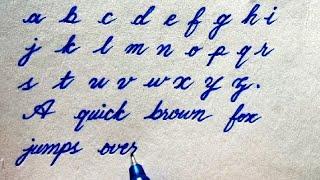 a b c d e f g h i
j k l m n o p q r
s t u v w x y z.
A quick brown fox
jumps over